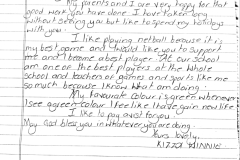 My parents and I are very happy for that
good work you have done. I have taken long
without seeing you but like to spend my holidays
with you.
I like playing netball because it is
my best game and I would like you to support
me and I become a best player. At our school
am one of the best players of the whole
school and teachers of games and sports like me
so much because I know what am doing.
My favourate colour is green whenever
I see a green colour I feel like I have gain new life
I like to pray ever for you
May God bless you in whatever you are doing.
Yours lovely,
KIZZA WINNIE